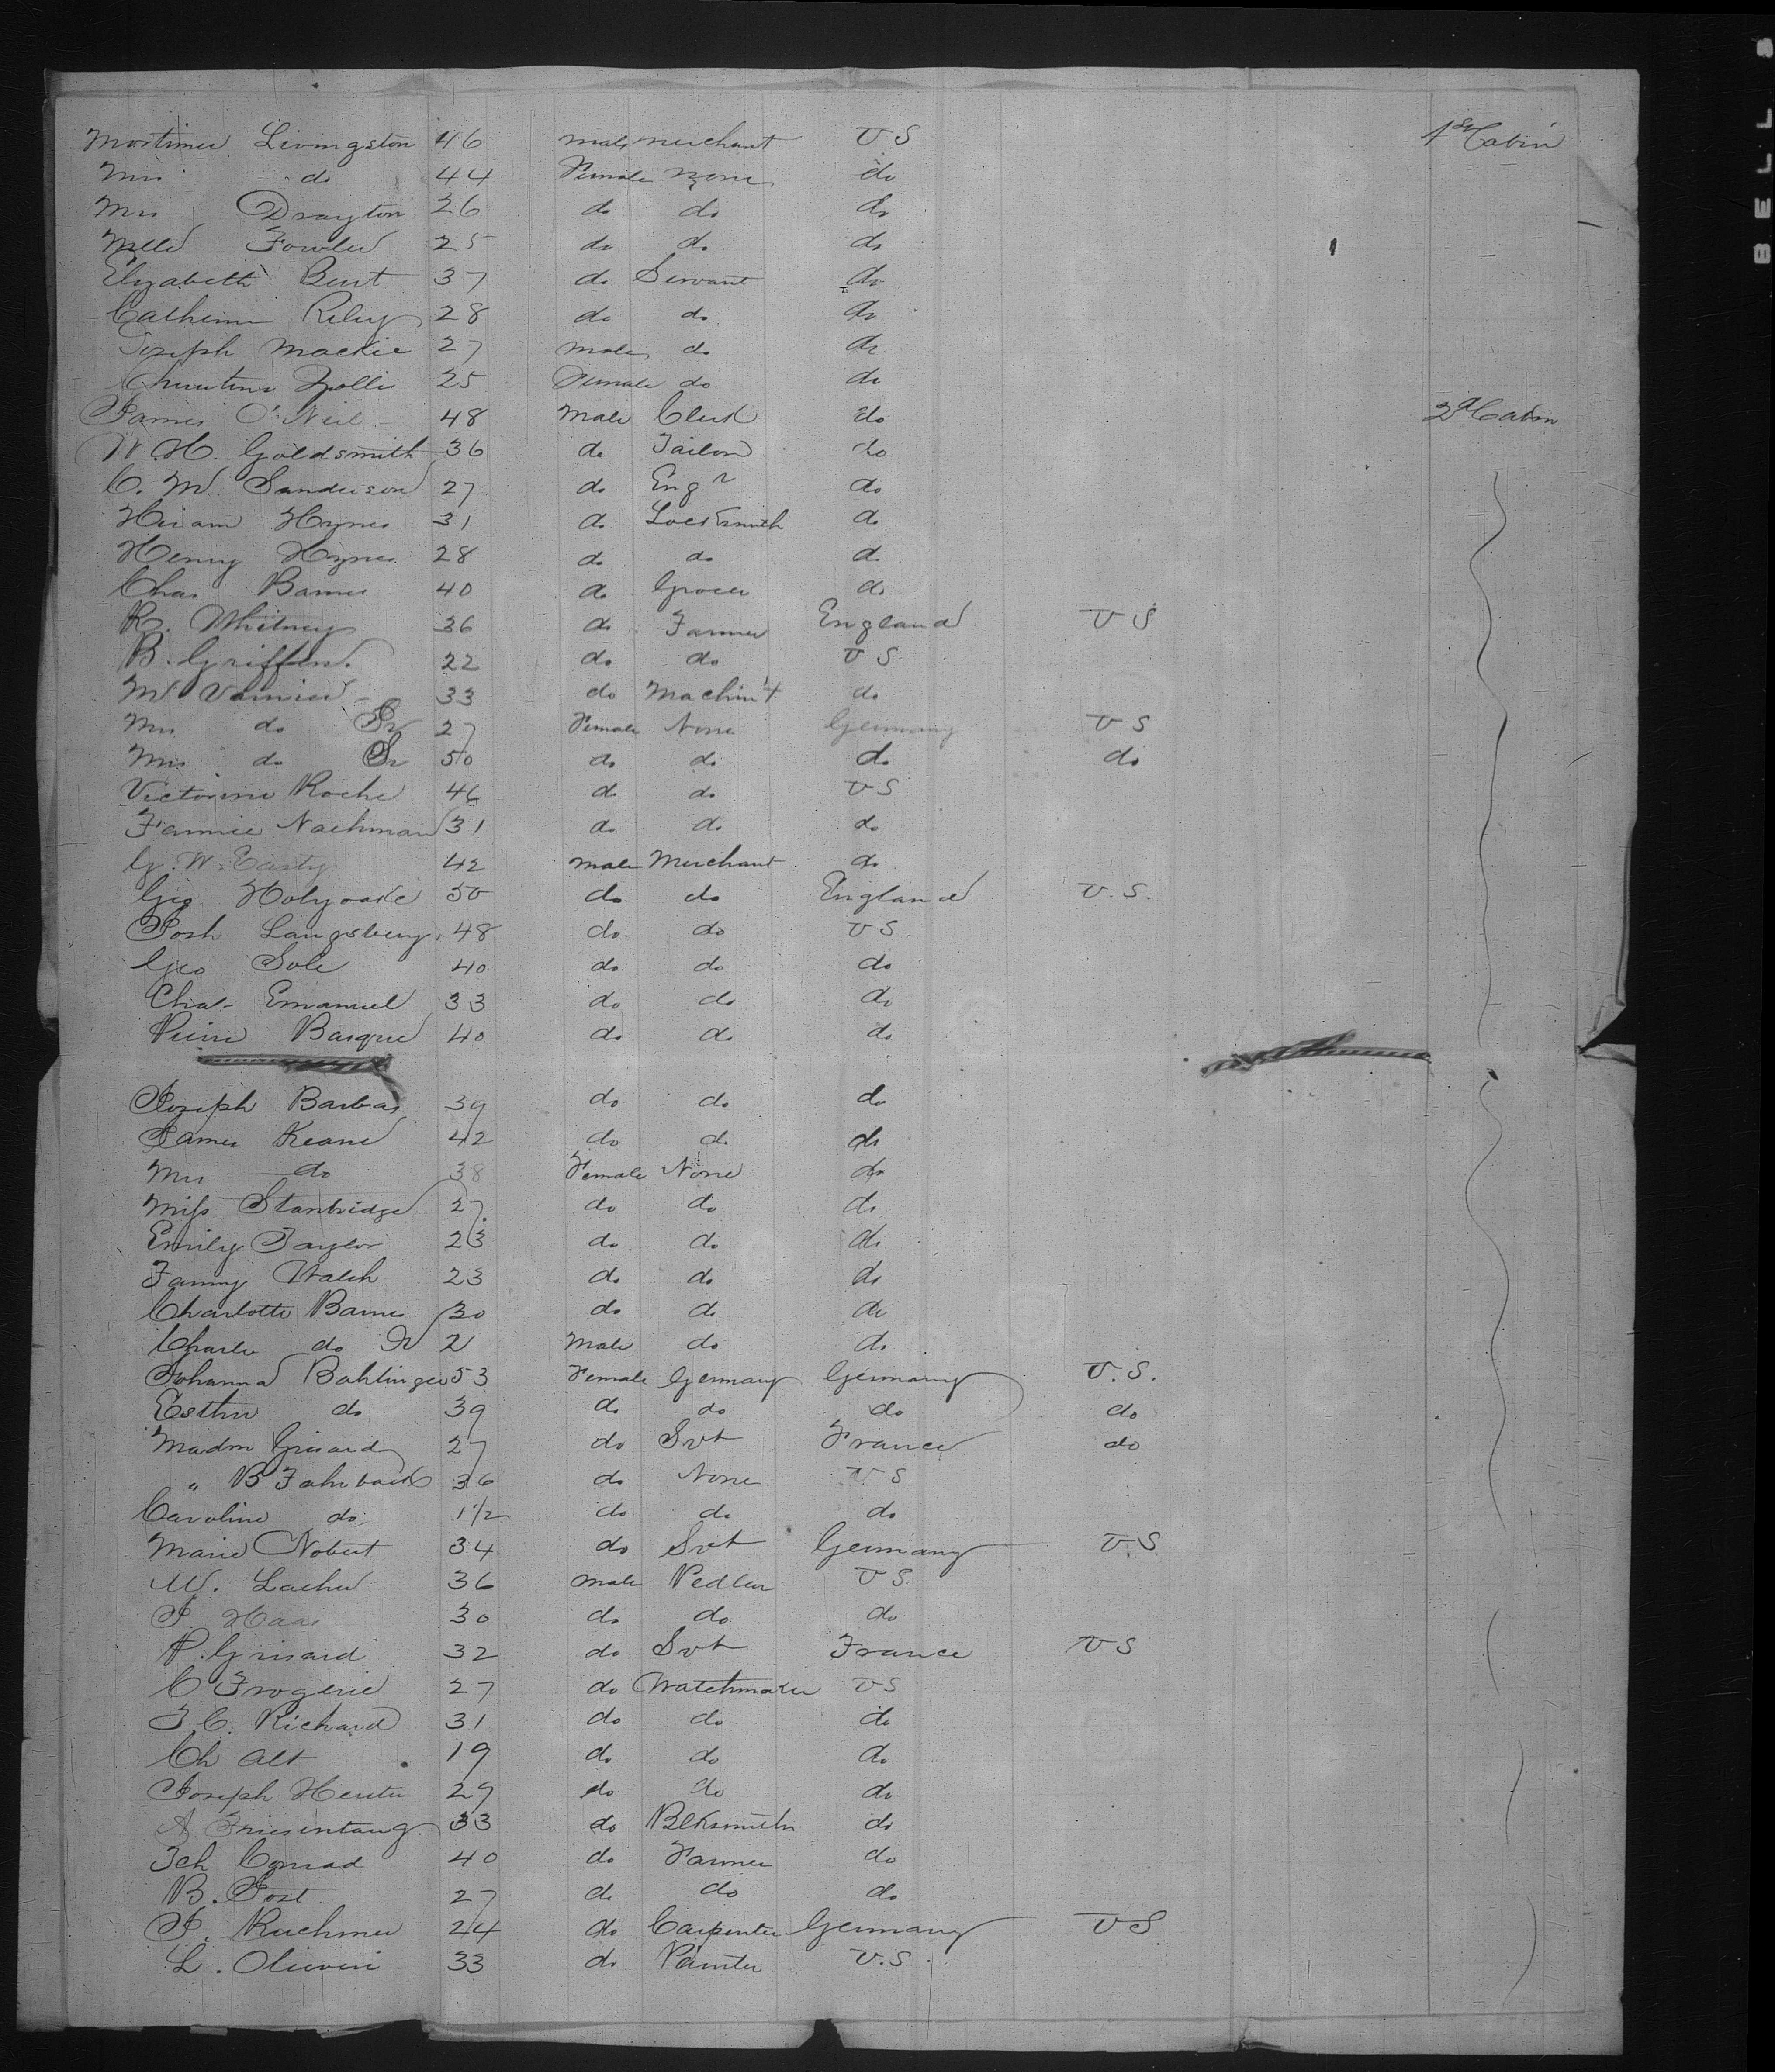 Mortimer Livingston 46 male merchant U S 1st Cabin
Mrs do 44 Female none do
Mrs Drayton 26 do do do
Melle Fowler 25 do do do
Elizabeth Burt 37 do Servant do
Catherine Riley 28 do do do
Joseph Mackie 27 male do do
25 Female do do
James O'Neil 48 Male Clerk do 2d Cabin
W. H. Goldsmith 36 do Tailor do
C. W. Sanderson 27 do Engr do
Hiram Hynes 31 do Locksmith do
Henry Hynes 28 do do do
Chas Barnes 40 do Grocer do
R. Whitney 36 do Farmer England U S
B. Griffin 22 do do U S
33 do Machin't do
Mrs do Jr 27 Female None Germany U S
Mrs do Sr 50 do do do do
Victorine Roche 46 do do U S
Fannie Nachman 31 do do do
G. W. Easty 42 male Merchant do
Geo Holyoake 50 do do England U.S.
Josh Langsberg 48 do do U S
Geo Sole 40 do do do
Chas Emanuel 33 do do do
Pierre Basque 40 do do do
Joseph Barbas 39 do do do
James Keane 42 do do do
Mrs do 38 Female None do
Miss Stanbridge 27 do do do
Emily Taylor 23 do do do
Fanny Walsh 23 do do do
Charlotte Barnes 30 do do do
Charles do Jr 2 Male do do
Johanna Bahlinger 53 Female Germany Germany U.S.
Esther do 39 do do do do
Madm Grisard 27 do Svt France do
" B Fahrback 36 do None U S
Caroline do 1 1/2 do do do
Marie Nobert 34 do Svt Germany U.S
W. Lacher 36 male Pedler U S.
J. Haas 30 do do do
P. Grisard 32 do Svt France U S
C. Frogerie 27 do Watchmaker U S
J. C. Richard 31 do do do
Ch Alt 19 do do do
Joseph Herter 29 do do do
A. Friesentaug 33 do Blksmith do
Jch Conrad 40 do Farmer do
B. Jost 27 do do do
J. Ruchmer 24 do Carpenter Germany U S
L. Olivieri 33 do Painter U.S.
BELL &